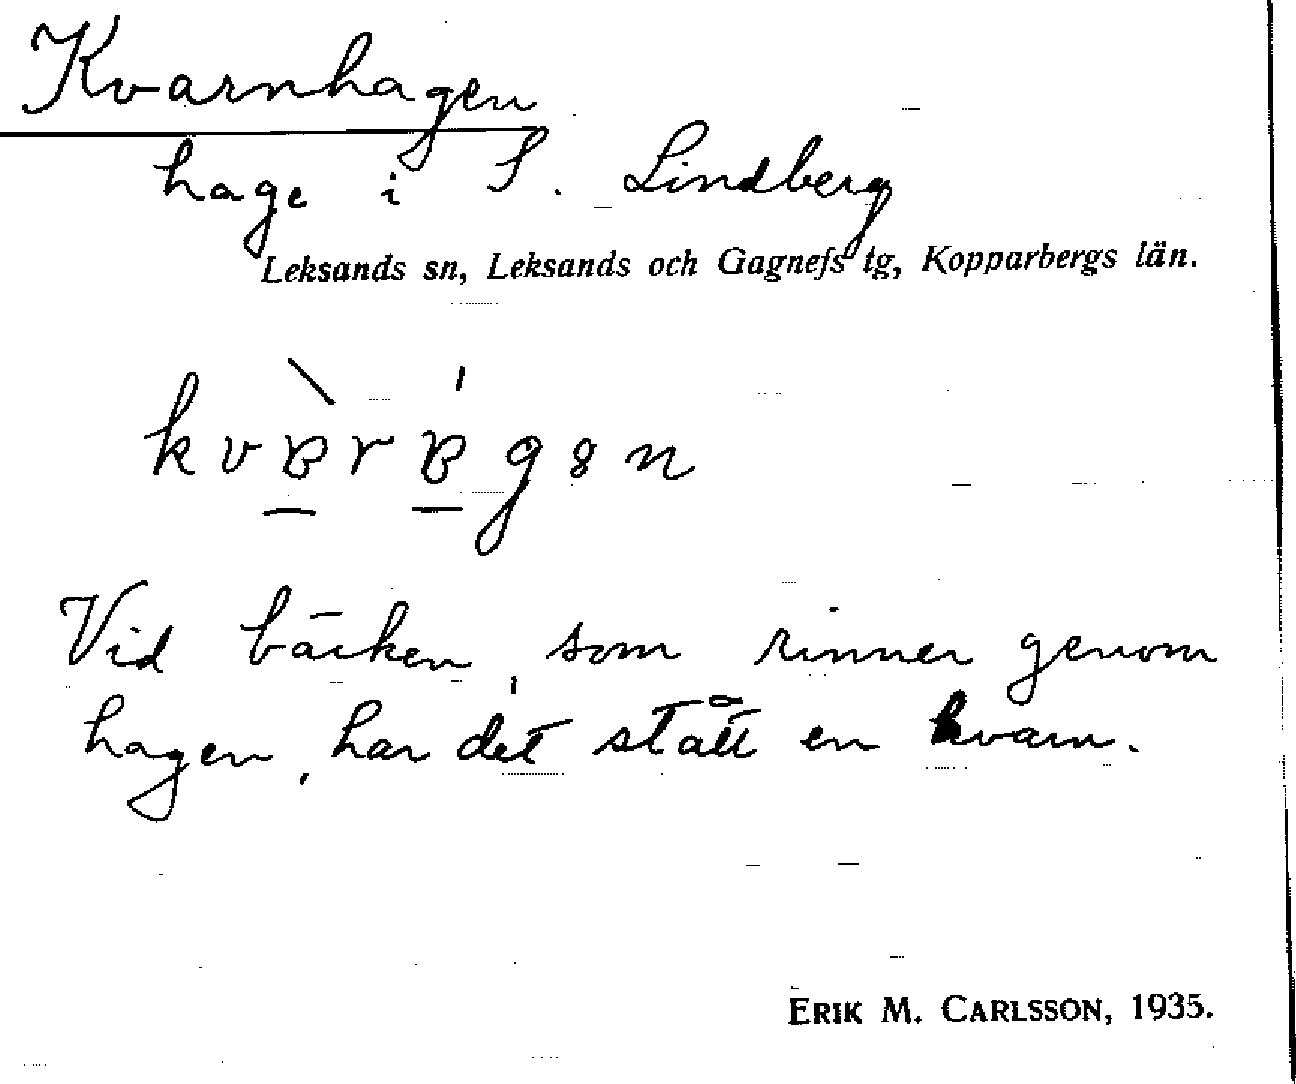 Kvarnhagen
hage i S. Lindberg
Leksands sn, Leksands och Gagnefs tg, Kopparbergs län.
Vid bäcken, som rinner genom
hagen, har det stått en kvarn.
ERIK M. CARLSSON, 1935.